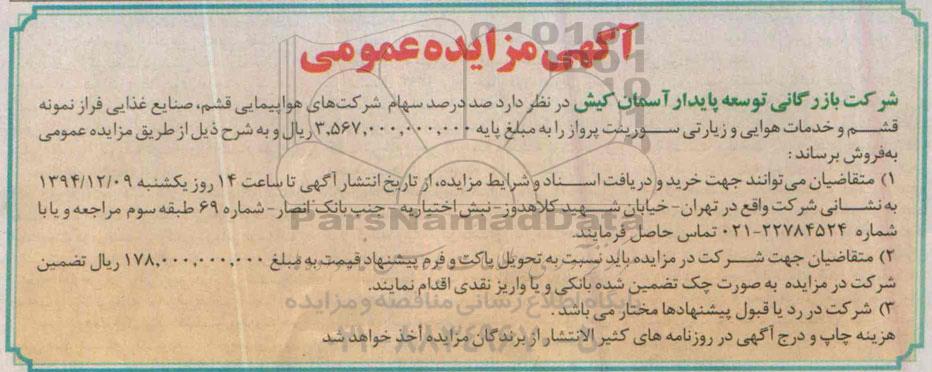 آگهی مزایده عمومی
شرکت بازرگانی توسعه پایدار آسمان کیش در نظر دارد صد درصد سهام شرکت‌های هواپیمایی قشم، صنایع غذایی فراز نمونه
قشم و خدمات هوایی و زیارتی سورینت پرواز را به مبلغ پایه ۳,۵۶۷,۰۰۰,۰۰۰,۰۰۰ ریال و به شرح ذیل از طریق مزایده عمومی
به‌فروش برساند :
۱) متقاضیان می‌توانند جهت خرید و دریافت اسناد و شرایط مزایده، از تاریخ انتشار آگهی تا ساعت ۱۴ روز یکشنبه ۱۳۹۴/۱۲/۰۹
به نشانی شرکت واقع در تهران- خیابان شهید کلاهدوز- نبش اختیاریه- جنب بانک انصار- شماره ۶۹ طبقه سوم مراجعه و یا با
شماره ۲۲۷۸۴۵۲۴-۰۲۱ تماس حاصل فرمایند.
۲) متقاضیان جهت شرکت در مزایده باید نسبت به تحویل پاکت و فرم پیشنهاد قیمت به مبلغ ۱۷۸,۰۰۰,۰۰۰,۰۰۰ ریال تضمین
شرکت در مزایده به صورت چک تضمین شده بانکی و یا واریز نقدی اقدام نمایند.
۳) شرکت در رد یا قبول پیشنهادها مختار می باشد .
هزینه چاپ و درج آگهی در روزنامه های کثیر الانتشار از برندگان مزایده أخذ خواهد شد
ParsNamadData
پایگاه اطلاع رسانی مناقصه و مزایده